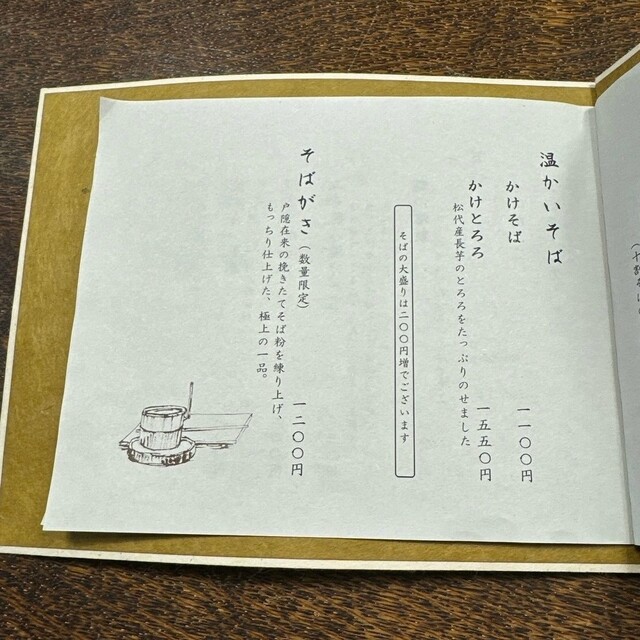 温かいそば
かけそば　一一〇〇円
かけとろろ　一五五〇円
松代産長芋のとろろをたっぷりのせました
そばの大盛りは二〇〇円増でございます
そばがき（数量限定）　一二〇〇円
戸隠在来の挽きたてそば粉を練り上げ、
もっちり仕上げた、極上の一品。